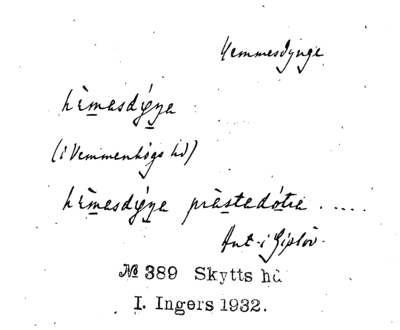 Hemmesdynge
hèmesdýŋa
(i Vemmenhögs hd)
hèmesdýŋa prästedótra .....
Ant. i Gislöv.
№ 389 Skytts hd
I. Ingers 1932.